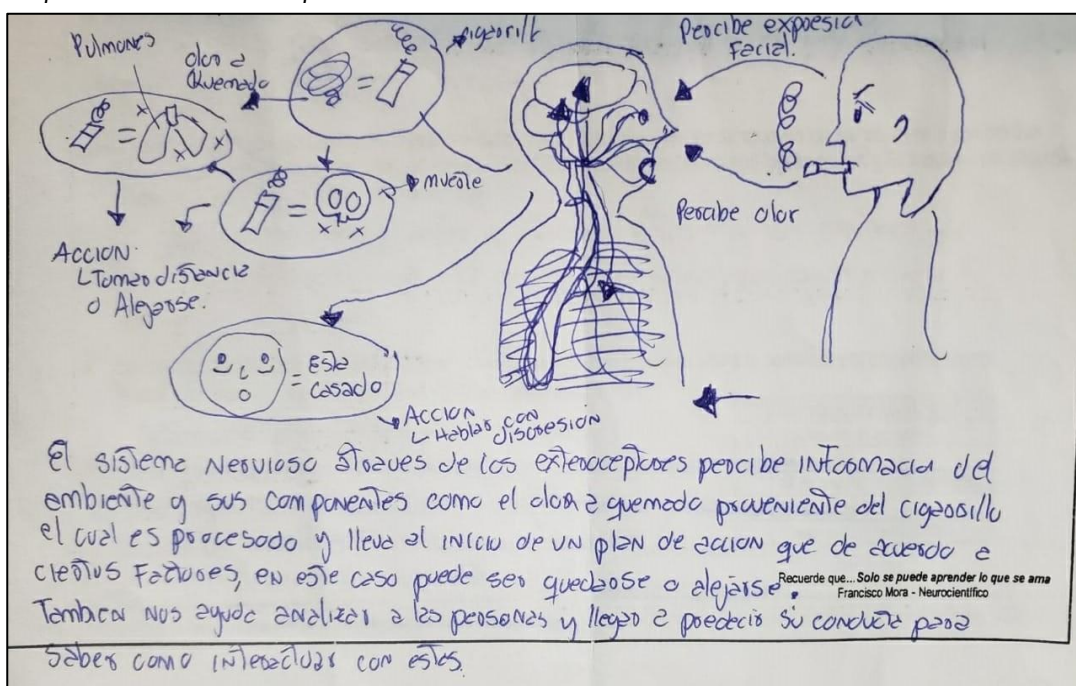 Pulmones
olor a
Quemado
cigarrill
Percibe expresia
Facial.
muerte
Percibe olor
ACCION.
Tomar distancia
o Alejarse.
= Esta
casado
ACCION
Hablar con
discresion
El sistema Nervioso atraves de los exteroceptores percibe INFormacia del
ambiente y sus componentes como el olor a quemado proveniente del cigarrillo
el cual es procesado y lleva al inicio de un plan de accion que de acuerdo a
ciertus Factores, en este caso puede ser quedarse o alejarse.
Recuerde que... Solo se puede aprender lo que se ama
Francisco Mora - Neurocientífico
Tambien nos ayuda analizar a las personas y llegar a predecir su conducta para
saber como interactuar con estas.